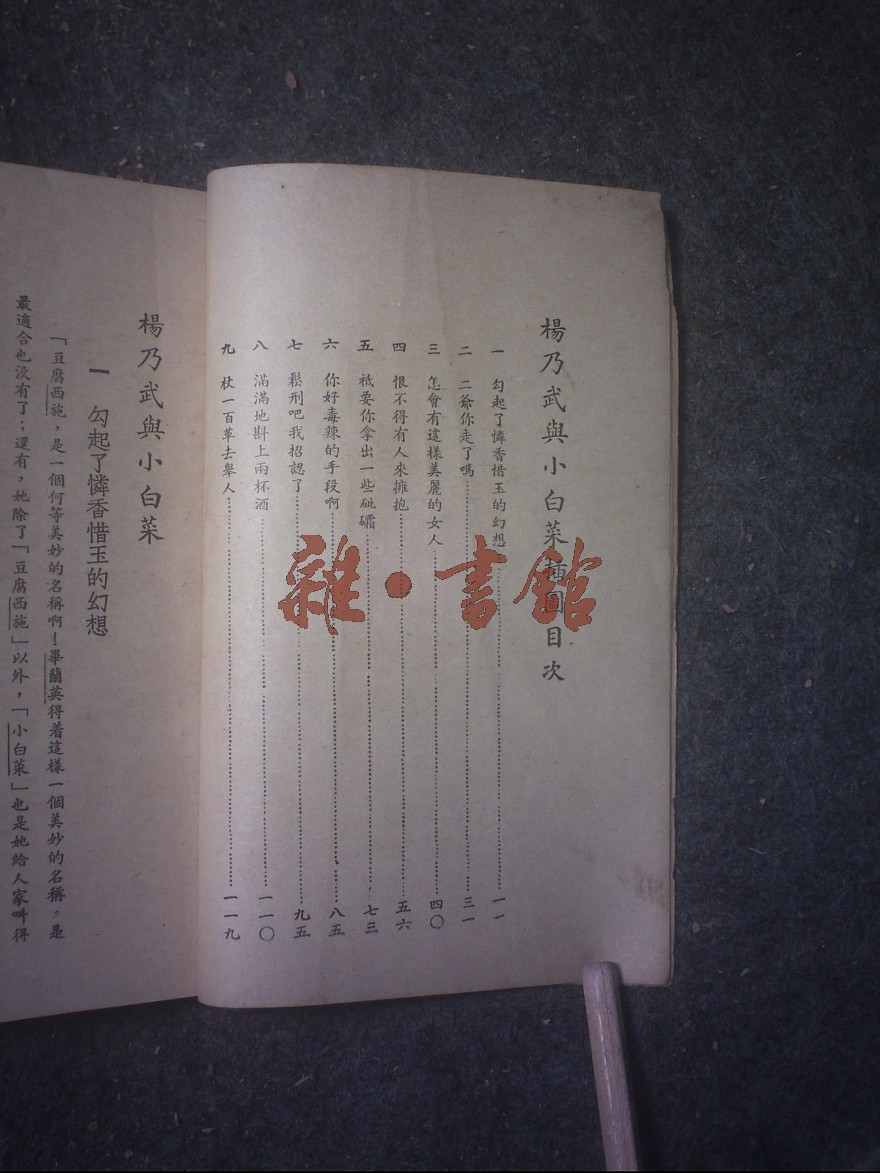 楊乃武與小白菜插圖目次
一 勾起了憐香惜玉的幻想……一一
二 二爺你走了嗎……三一
三 怎會有這樣美麗的女人……四〇
四 恨不得有人來擁抱……五六
五 祇要你拿出一些砒礵……七三
六 你好毒辣的手段啊……八五
七 鬆刑吧我招認了……九五
八 滿滿地斟上兩杯酒……一一〇
九 杖一百革去舉人……一一九
楊乃武與小白菜
一 勾起了憐香惜玉的幻想
「豆腐西施,是一個何等美妙的名稱啊!畢蘭英得着這樣一個美妙的名稱,是
最適合也没有了;還有,她除了「豆腐西施」以外,「小白菜」也是她給人家呌得
雜·書館